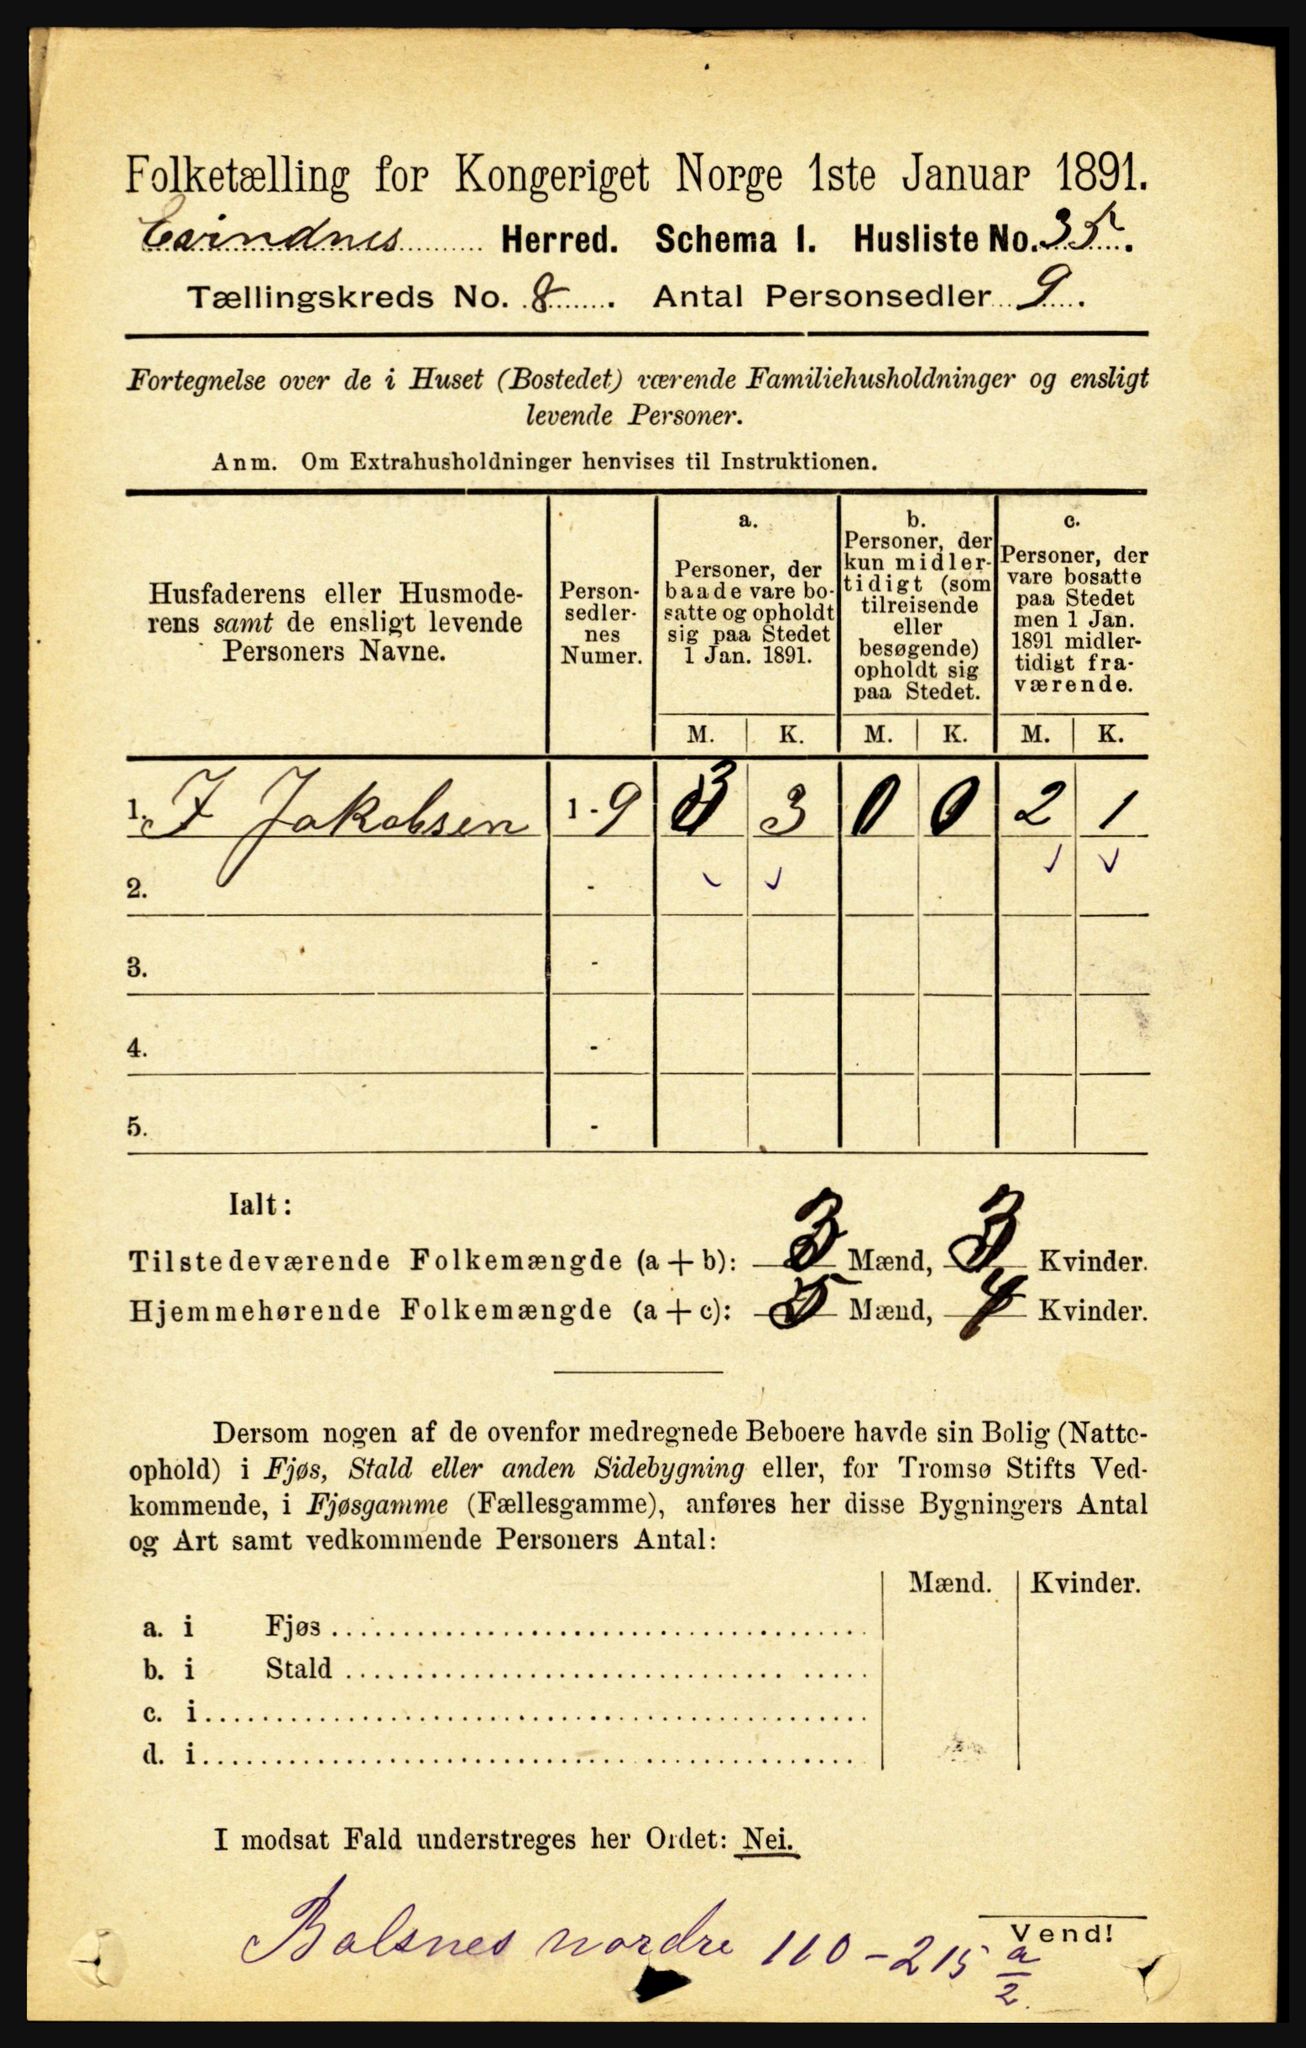 Folketælling for Kongeriget Norge 1ste Januar 1891.
Evindnes Herred. Schema I. Husliste No. 35.
Tællingskreds No. 8. Antal Personsedler 9.
Fortegnelse over de i Huset (Bostedet) værende Familiehusholdninger og ensligt
levende Personer.
Anm. Om Extrahusholdninger henvises til Instruktionen.
Husfaderens eller Husmode-
rens samt de ensligt levende
Personers Navne.
Person-
sedler-
nes
Numer.
a.
Personer, der
baade vare bo-
satte og opholdt
sig paa Stedet
1 Jan. 1891.
b.
Personer, der
kun midler-
tidigt (som
tilreisende
eller
besøgende)
opholdt sig
paa Stedet.
c.
Personer, der
vare bosatte
paa Stedet
men 1 Jan.
1891 midler-
tidigt fra-
værende.
M. K. M. K. M. K.
1. J Jakobsen 1 - 9 3 3 0 0 2 1
2. - ✓ ✓ ✓ ✓
3. -
4. -
5. -
Ialt:
Tilstedeværende Folkemængde (a + b): 3 Mænd, 3 Kvinder.
Hjemmehørende Folkemængde (a + c): 5 Mænd, 4 Kvinder.
Dersom nogen af de ovenfor medregnede Beboere havde sin Bolig (Natte-
ophold) i Fjøs, Stald eller anden Sidebygning eller, for Tromsø Stifts Ved-
kommende, i Fjøsgamme (Fællesgamme), anføres her disse Bygningers Antal
og Art samt vedkommende Personers Antal:
Mænd. Kvinder.
a. i Fjøs
b. i Stald
c. i
d. i
I modsat Fald understreges her Ordet: Nei.
Vend!
Balsnes nordre 110 - 215 a/2